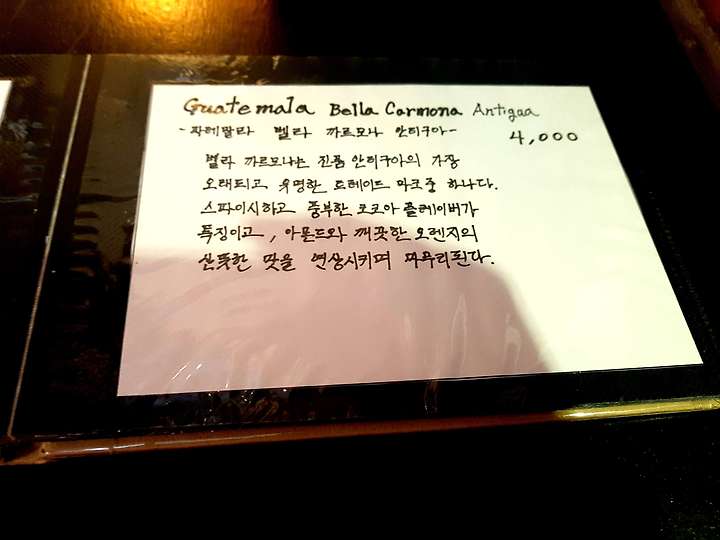 Guatemala Bella Carmona Antigua
-과테말라 벨라 까르모나 안티구아-
4,000
벨라 까르모나는 진품 안티구아의 가장
오래되고 유명한 트레이드 마크중 하나다.
스파이시하고 풍부한 코코아 플레이버가
특징이고, 아몬드와 깨끗한 오렌지의
산뜻한 맛을 연상시키며 마무리된다.